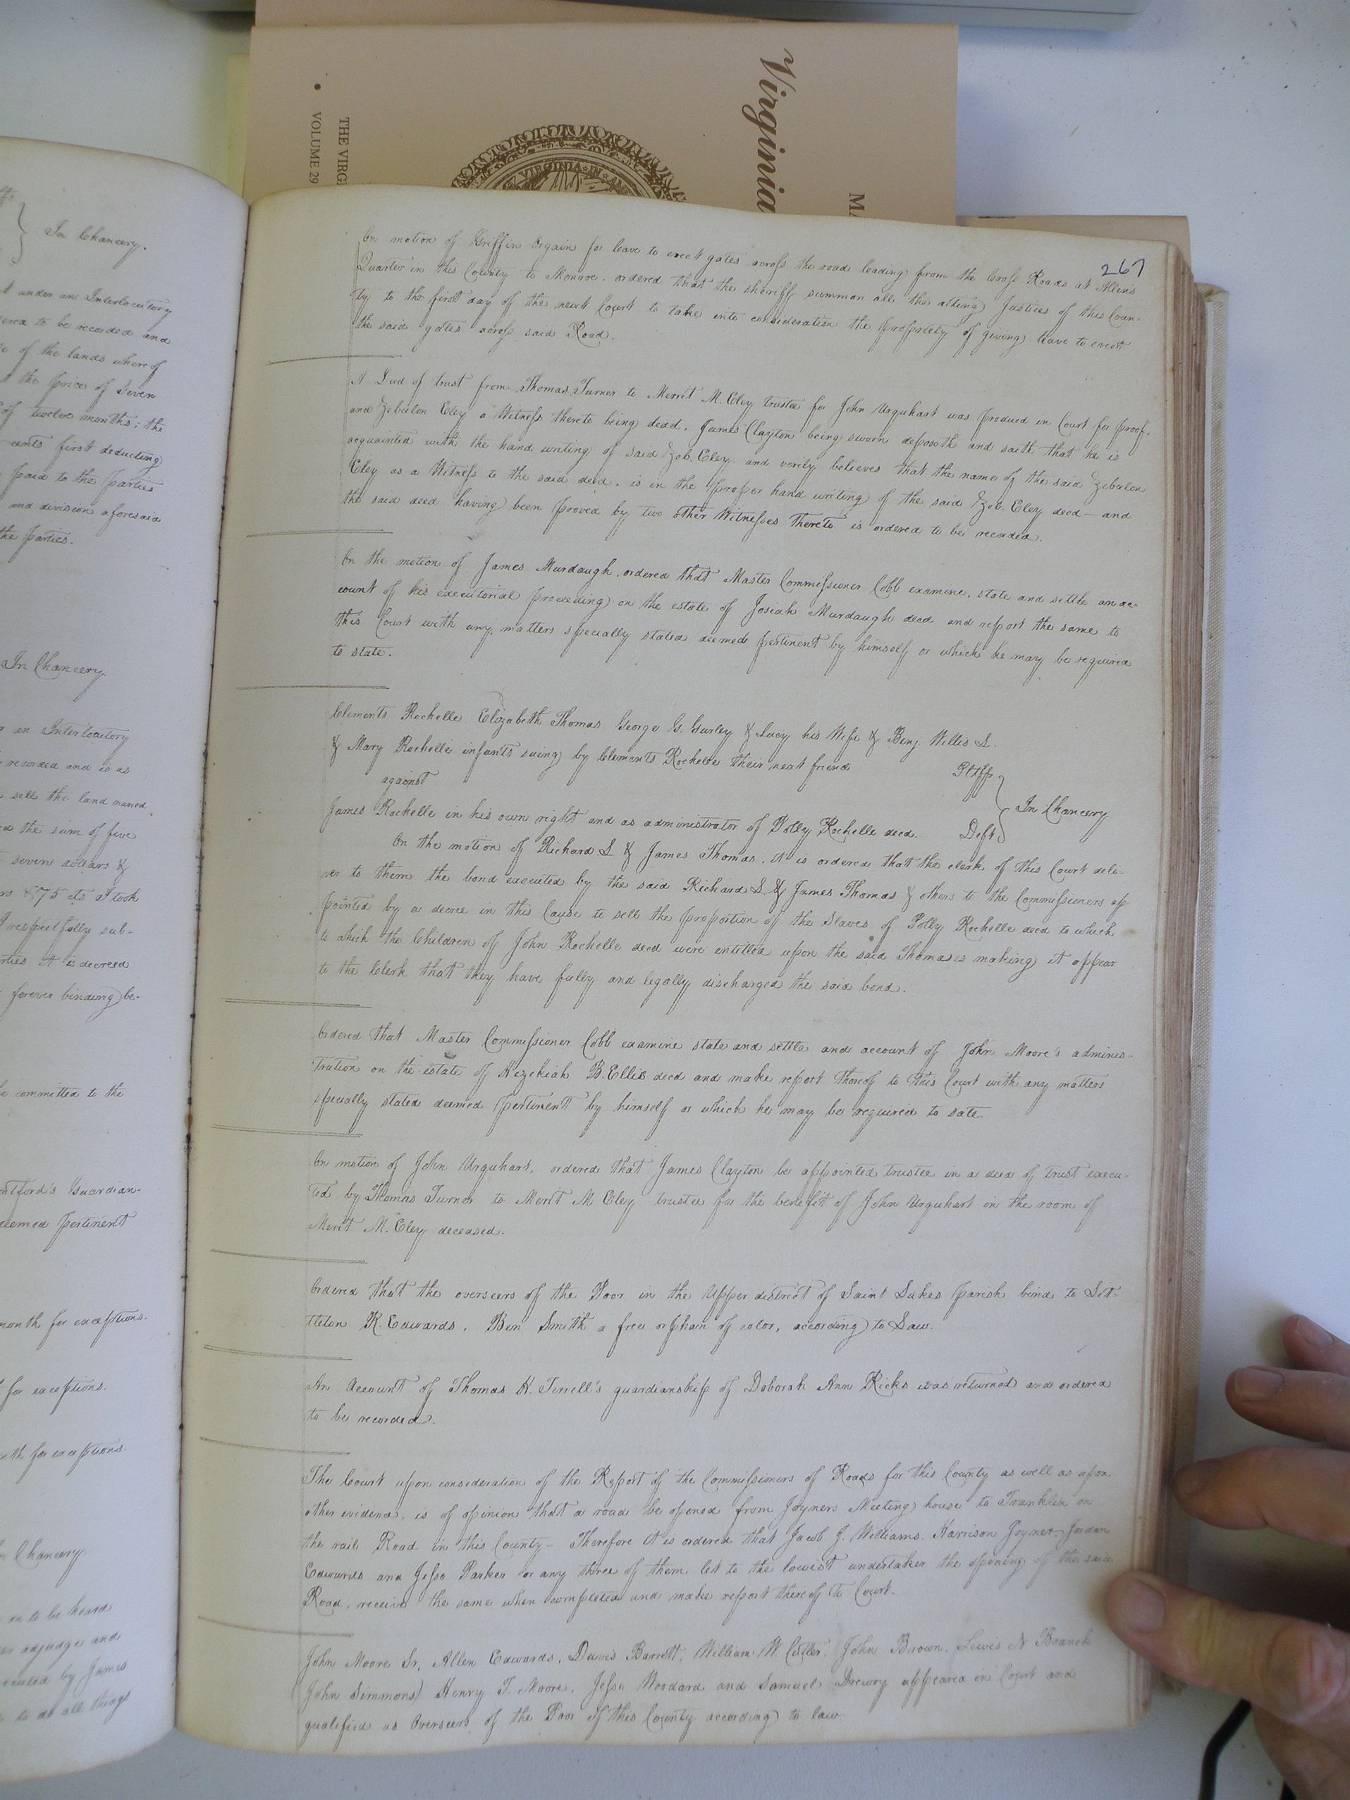 Virginia
THE VIRG
VOLUME 29
MA
VIRGINIA IN AM
In Chancery.
t under an Interlocutory
ered to be recorded and
e of the lands whereof
t the price of Seven
of twelve months; the
cents first deducting
paid to the parties
and division aforesaid
the parties.
In Chancery.
r an Interlocutory
recorded and is as
sell the land named
the sum of five
seven dollars &
75 cts I took
respectfully sub-
it is decreed
forever binding be-
be committed to the
Guardian-
deemed pertinent
month for exceptions.
for exceptions.
th for exceptions
In Chancery
on to be heard
adjudge and
by James
to do all things
267
On motion of Griffin Orgain for leave to erect gates across the road leading from the Cross Roads at Allen's
Quarter in this County to Monroe. ordered that the sheriff summon all the acting Justices of this Coun-
ty to the first day of the next Court to take into consideration the propriety of giving leave to erect
the said gates across said Road.
A Deed of trust from Thomas Turner to Merrit M. Cley trustee for John Urquhart was produced in Court for proof.
and Zebulon Cley a Witness thereto being dead. James Clayton being sworn deposeth and saith that he is
acquainted with the hand writing of said Zeb. Cley. and verily believes that the name of the said Zebulon
Cley as a Witness to the said deed. is in the proper hand writing of the said Zeb. Cley decd- and
the said deed having been proved by two other Witnesses thereto is ordered to be recorded.
On the motion of James Murdaugh. ordered that Master Commissioner Cobb examine, state and settle an ac-
count of his executorial proceeding on the estate of Josiah Murdaugh decd and report the same to
this Court with any matters specially stated deemed pertinent by himself or which he may be required
to state.
Clements Rochelle Elizabeth Thomas George G. Gurley & Lucy his Wife & Benj. Willis L.
& Mary Rochelle infants suing by Clements Rochelle their next friend Pltffs
against
In Chancery
James Rochelle in his own right and as administrator of Polly Rochelle decd. Deft
On the motion of Richard L & James Thomas. it is ordered that the clerk of this Court deli-
ver to them the bond executed by the said Richard L & James Thomas & others to the Commissioners ap
pointed by a decree in this Cause to sell the proportion of the Slaves of Polly Rochelle decd to which
to which the Children of John Rochelle decd were entitled upon the said Thomases making it appear
to the Clerk that they have fully and legally discharged the said bond.
Ordered that Master Commissioner Cobb examine state and settle and account of John Moore's adminis-
tration on the estate of Hezekiah B. Ellis decd and make report thereof to this Court with any matters
specially stated deemed pertinent by himself or which he may be required to sate
On motion of John Urquhart, ordered that James Clayton be appointed trustee in a deed of trust execu-
ted by Thomas Turner to Merit M Cley trustee for the benefit of John Urquhart in the room of
Merit M. Cley deceased.
Ordered that the overseers of the Poor in the Upper district of Saint Lukes parish bind to Lit-
tleton R. Edwards. Ben Smith a free orphan of color, according to Law.
An Account of Thomas H. Terrell's guardianship of Deborah Ann Ricks was returned and ordered
to be recorded.
The Court upon consideration of the Report of the Commissioners of Roads for this County as well as upon
other evidence. is of opinion that a road be opened from Joyners Meeting house to Franklin on
the rail Road in this County- Therefore it is ordered that Jacob J. Williams. Harrison Joyner Jordan
Edwards and Jesse Parker or any three of them let to the lowest undertaker the opening of the said
Road. receive the same when completed and make report thereof to Court.
John Moore Sr, Allen Edwards, Davis Barrett. William W. Cutler. John Brown. Lewis N Branch
John Simmons Henry T. Moore. Jesse Woodard and Samuel Drewry appeared in Court and
qualified as Overseers of the Poor of this County according to law.